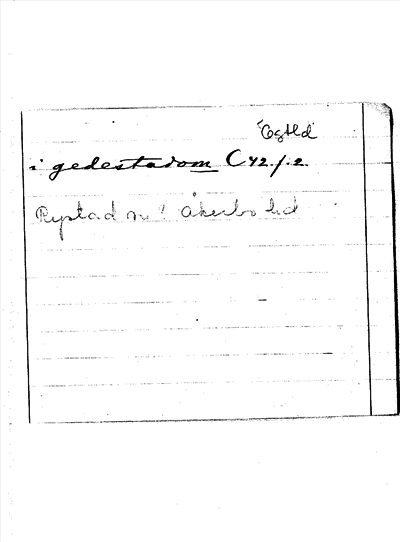 Ögtld
i gedestadom C 42. f. 2.
Rystad sn? Åkerbo hd